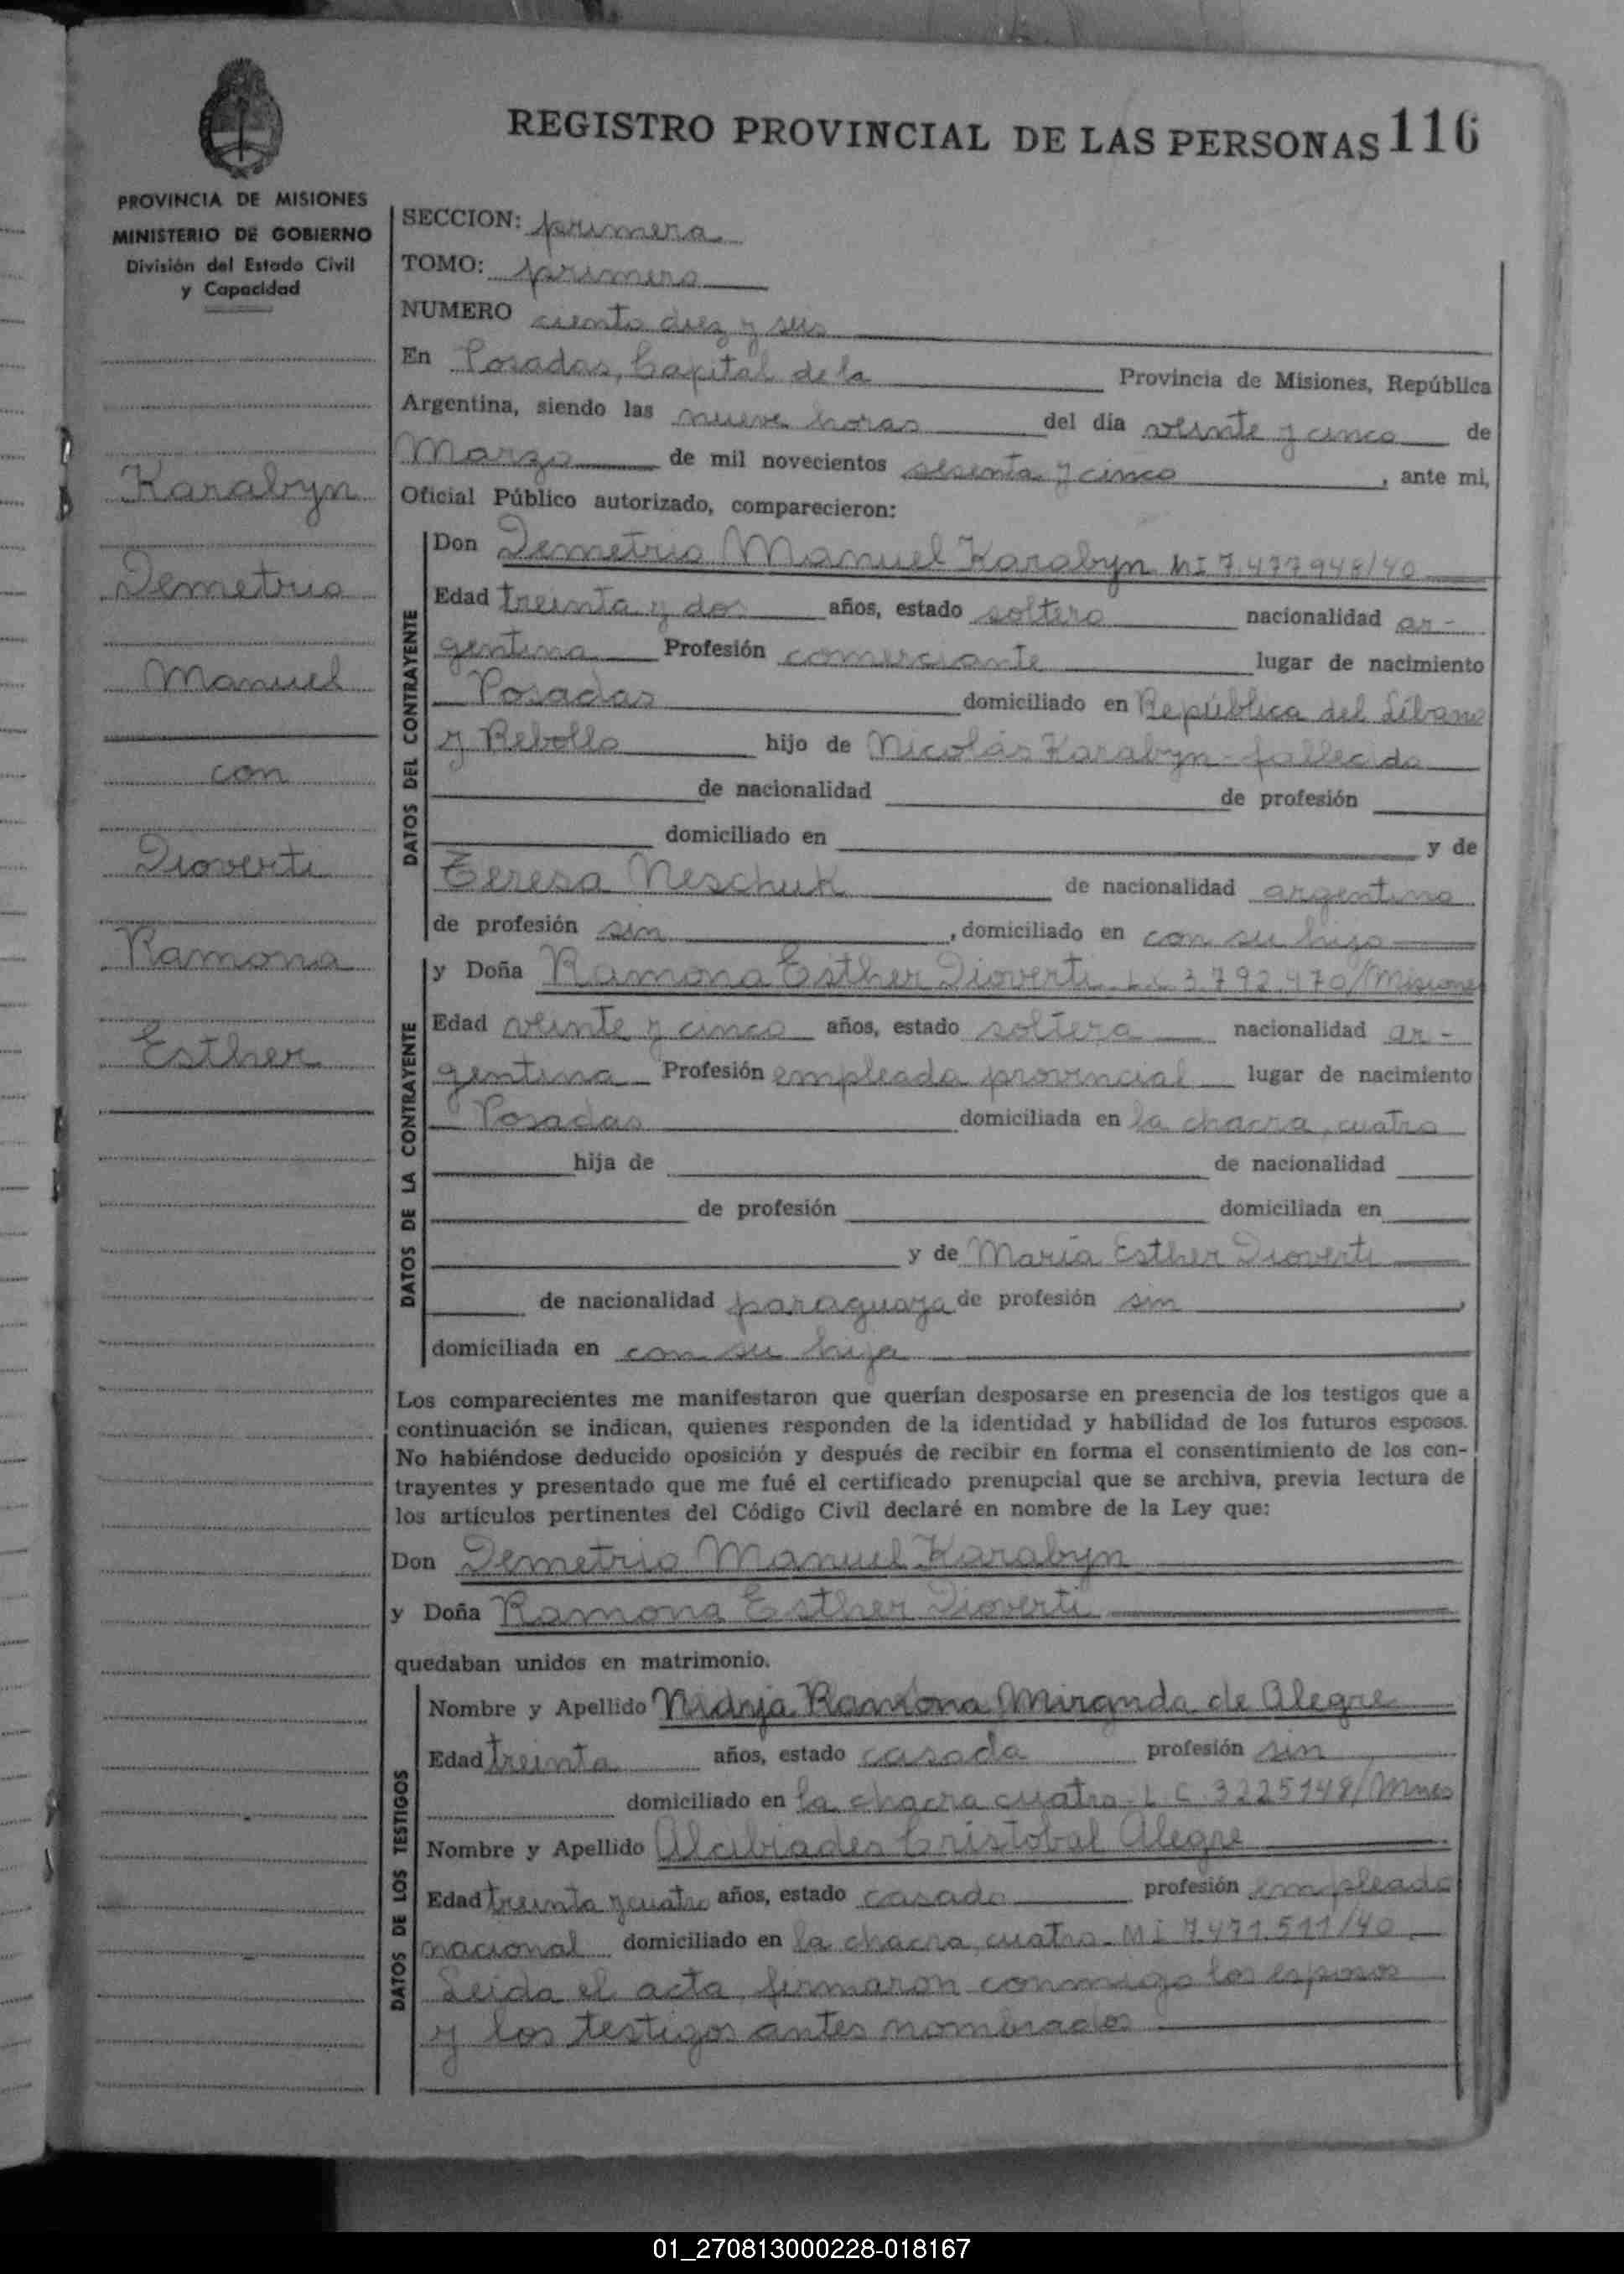 REGISTRO PROVINCIAL DE LAS PERSONAS 116
PROVINCIA DE MISIONES
MINISTERIO DE GOBIERNO
División del Estado Civil
y Capacidad
Karabyn
Demetrio
Manuel
con
Dioverti
Ramona
Esther
SECCION: primera
TOMO: primero
NUMERO ciento diez y seis
En Posadas, Capital de la Provincia de Misiones, República
Argentina, siendo las nueve horas del día veinte y cinco de
Marzo de mil novecientos sesenta y cinco, ante mi,
Oficial Público autorizado, comparecieron:
DATOS DEL CONTRAYENTE
Don Demetrio Manuel Karabyn MI 7.477948/40
Edad treinta y dos años, estado soltero nacionalidad ar-
gentina Profesión comerciante lugar de nacimiento
Posadas domiciliado en República del Líbano
y Rebollo hijo de Nicolás Karabyn - fallecido
de nacionalidad de profesión
domiciliado en y de
Teresa Neschuk de nacionalidad argentina
de profesión sin, domiciliado en con su hijo
DATOS DE LA CONTRAYENTE
y Doña Ramona Esther Dioverti L.C 3.792.470/Misiones
Edad veinte y cinco años, estado soltera nacionalidad ar-
gentina Profesión empleada provincial lugar de nacimiento
Posadas domiciliada en la chacra cuatro
hija de de nacionalidad
de profesión domiciliada en
y de María Esther Dioverti
de nacionalidad paraguaya de profesión sin,
domiciliada en con su hija
Los comparecientes me manifestaron que querían desposarse en presencia de los testigos que a
continuación se indican, quienes responden de la identidad y habilidad de los futuros esposos.
No habiéndose deducido oposición y después de recibir en forma el consentimiento de los con-
trayentes y presentado que me fué el certificado prenupcial que se archiva, previa lectura de
los artículos pertinentes del Código Civil declaré en nombre de la Ley que:
Don Demetrio Manuel Karabyn
y Doña Ramona Esther Dioverti
quedaban unidos en matrimonio.
DATOS DE LOS TESTIGOS
Nombre y Apellido Ramona Miranda de Alegre
Edad treinta años, estado casada profesión sin
domiciliado en la chacra cuatro - L C 3225148/Mnes
Nombre y Apellido Alcibiades Cristobal Alegre
Edad treinta y cuatro años, estado casado profesión empleado
nacional domiciliado en la chacra cuatro - MI 7.471.511/40
Leida el acta, firmaron conmigo los esposos
y los testigos antes nombrados
01_270813000228-018167